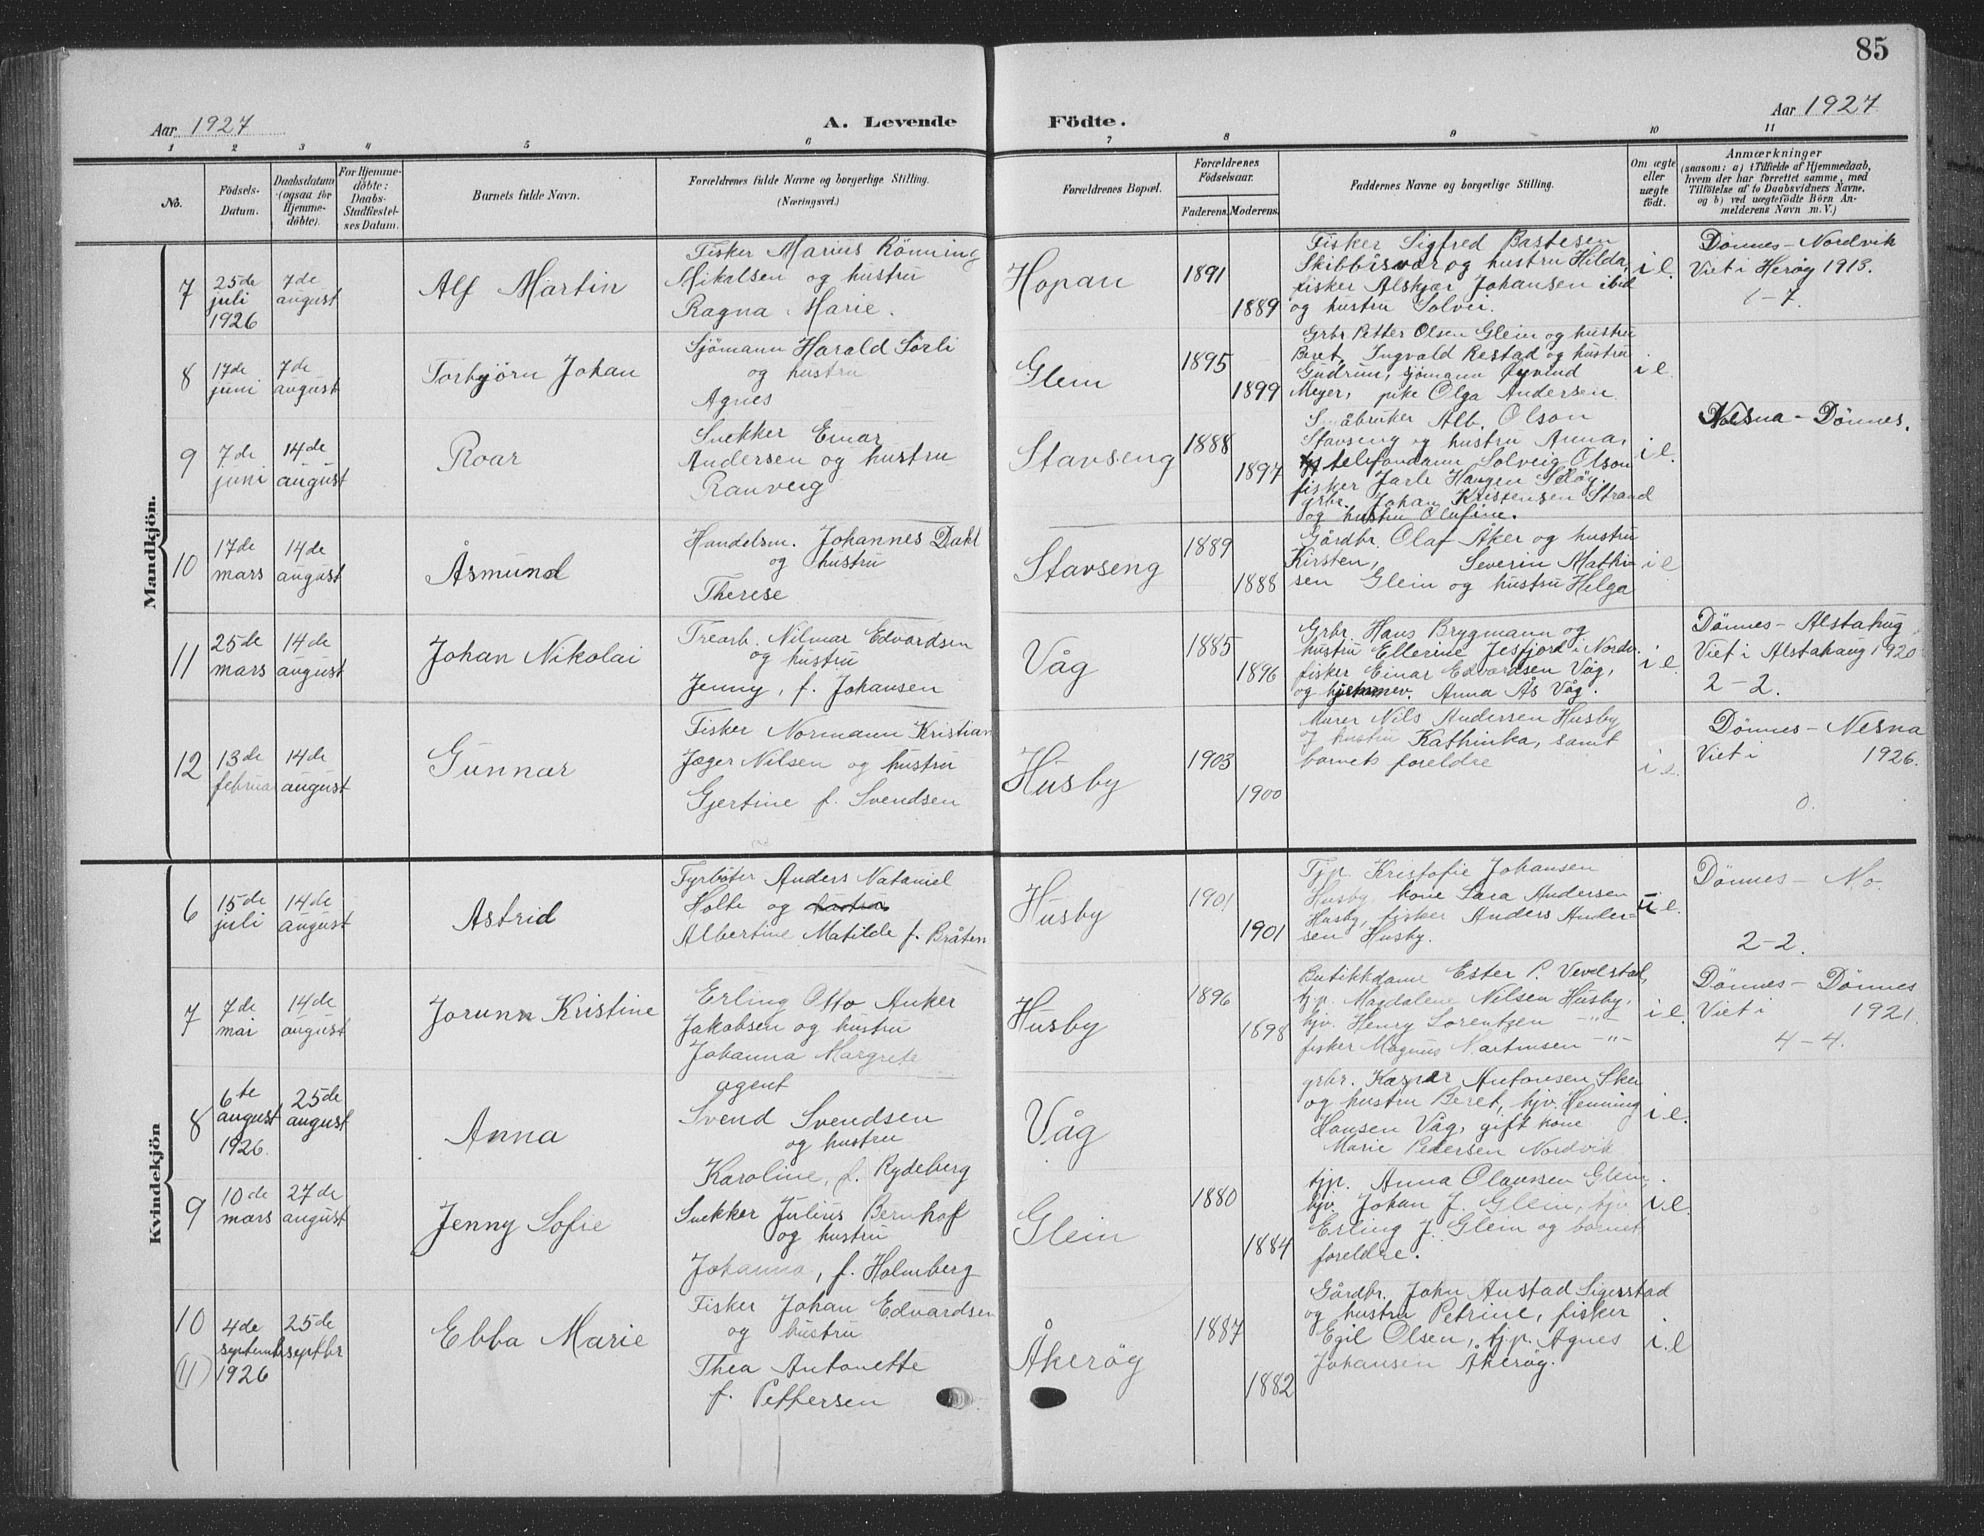 85
Aar 1927
A. Levende
Födte.
Aar 1927
1 2 3 4 5 6 7 8 9 10 11
No.
Födsels-
Datum.
Daabsdatum
(ogsaa for
Hjemme-
döbte).
For Hjemme-
döbte:
Daabs-
Stadfæstel-
ses Datum.
Barnets fulde Navn.
Forældrenes fulde Navne og borgerlige Stilling.
(Næringsvei.)
Forældrenes Bopæl.
Forældrenes
Födselsaar.
Faderens. Moderens.
Faddernes Navne og borgerlige Stilling.
Om ægte
eller
uægte
födt.
Anmærkninger
(saasom: a) i Tilfælde af Hjemmedaab,
hvem der har forrettet samme, med
Tilföielse af to Daabsvidners Navne,
og b) ved uægtefödte Börn An-
melderens Navn m. V.)
Mandkjön.
7
25de
juli
1926
7de
august
Alf Martin
Fisker Marius Rönning
Mikalsen og hustru
Ragna Marie.
Hopan
1891
1889
Fisker Sigfred Bastesen
Skibbåsvær og hustru Hilda,
fisker Alskjær Johansen ibid
og hustru Solvei.
i e.
Dönnes - Nordvik
Viet i Herøy 1913.
1-7.
8
17de
juni
7de
august
Torbjörn Johan
Sjömann Harald Sörli
og hustru
Agnes
Glein
1895
1899
Grbr Petter Olsen Glein og hustru
Beret, Ingvald Restad og hustru
Gudrun, sjömann Øyvind
Meyer, pike Olga Andersen.
i e.
9
7de
juni
14de
august
Roar
Snekker Einar
Andersen og hustru
Ranveig
Stavseng
1888
1897
Småbruker Alb. Olson
Stavseng og hustru Anna,
telefondame Solveig Olson
fisker Jarle Haugen
grbr. Johan Kristensen Strand
og hustru Olufine.
i e.
Nesna - Dönnes.
10
17de
mars
14de
august
Åsmund
Handelsm. Johannes Dahl
og hustru
Therese
Stavseng
1889
1888
Gårdbr. Olaf Åker og hustru
Kirsten, Severin Mathi-
sen Glein og hustru Helga
i e
11
25de
mars
14de
august
Johan Nikolai
Trearb. Nilmar Edvardsen
og hustru
Jenny, f. Johansen
Våg
1885
1896
Grbr. Hans Brygmann og
hustru Ellerine Lesfjord i Nordv.
fisker Einar Edvardsen Våg,
og hjemmev. Anna Ås Våg.
i e
Dönnes - Alstahug
Viet i Alstahaug 1920
2-2.
12
13de
februa
14de
august
Gunnar
Fisker Normann Kristian
Jæger Nilsen og hustru
Gjertine f. Svendsen
Husby
1903
1900
Murer Nils Andersen Husby
og hustru Kathinka, samt
barnets foreldre
i e.
Dönnes - Nesna
Viet i 1926.
0.
Kvindekjön
6
15de
juli
14de
august
Astrid
Fyrböter Anders Nataniel
Holte og hustru
Albertine Matilde f. Bråten
Husby
1901
1901
Tjp. Kristofie Johansen
Husby, kone Sara Andersen
Husby, fisker Anders Ander-
sen Husby.
e.
Dönnes - No.
2-2.
7
7de
mai
14de
august
Jorunn Kristine
Erling Otto Anker
Jakobsen og hustru
Johanna Margrete
Husby
1896
1898
Butikkdame Ester P. Vevelstad,
tjp. Magdalene Nilsen Husby,
hjv. Henry Lorentzen -"-
fisker Magnus Martinsen -"-
i e.
Dönnes - Dönnes
Viet i 1921.
4-4.
8
6te
august
1926.
25de
august
Anna
agent
Svend Svendsen
og hustru
Karoline, f. Rydeberg
Våg
grbr. Kaspar Antonsen Skei
og hustru Beret, hjv. Henning
Hansen Våg, gift kone
Marie Pedersen Nordvik
i e.
9
10de
mars
27de
august
Jenny Sofie
Snekker Julius Bernhof
og hustru
Johanna, f. Holmberg
Glein
1880
1884
tjp. Anna Olaussen Glein,
hjv. Johan J. Glein, hjv
Erling J. Glein og barnets
foreldre.
i.e.
10
(11)
4de
septembr
1926
25de
septbr
Ebba Marie
Fisker Johan Edvardsen
og hustru
Thea Antonette
f. Pettersen
Åkerøg
1887
1882
Gårdbr. John Austad Sigerstad
og hustru Petrine, fisker
Egil Olsen, tjp. Agnes
Johansen Åkerøg.
i.e